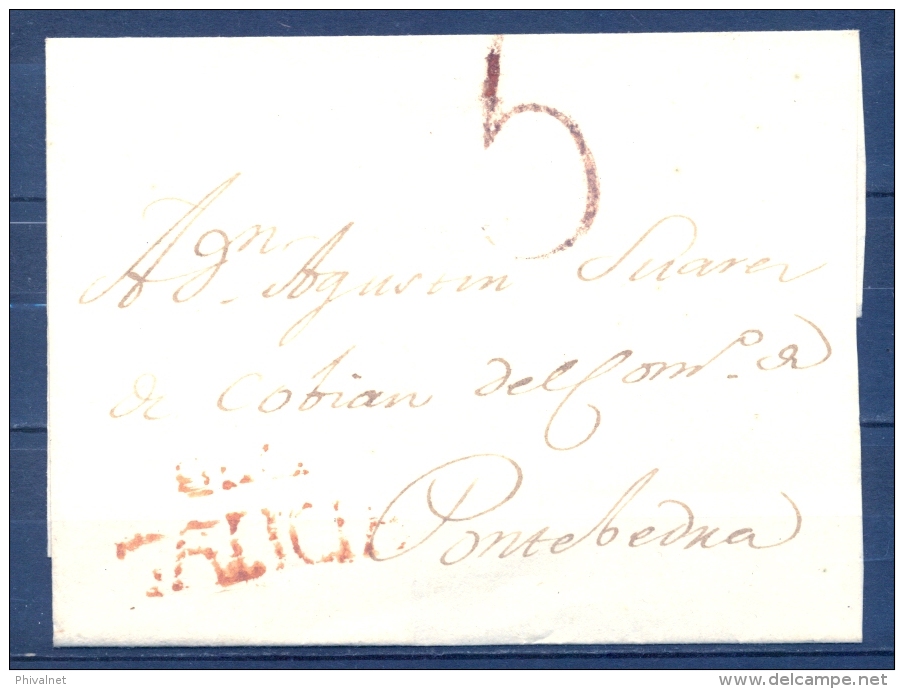 5
A Dn. Agustin Suarez
de Cobian del Comº. de
GALICIA
Pontebedra
Phivalnet
delcampe.net